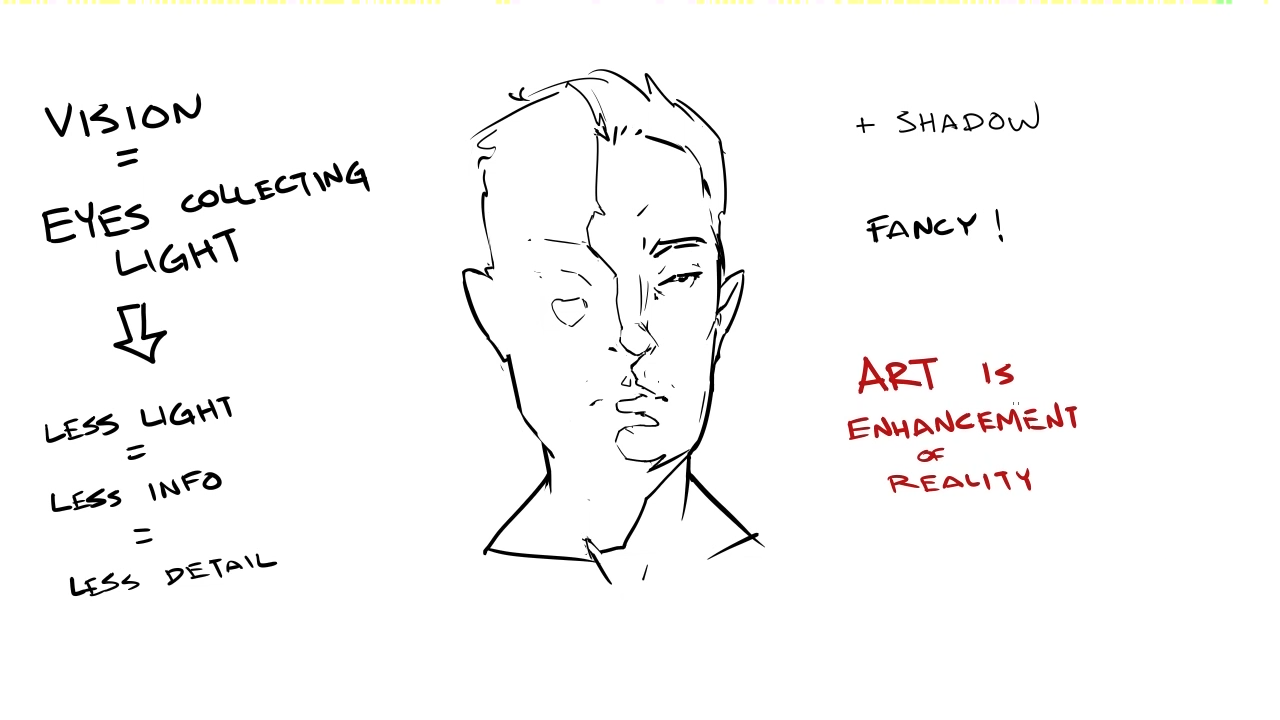 VISION
=
EYES COLLECTING
LIGHT
LESS LIGHT
=
LESS INFO
=
LESS DETAIL
+ SHADOW
FANCY!
ART IS
ENHANCEMENT
OF
REALITY